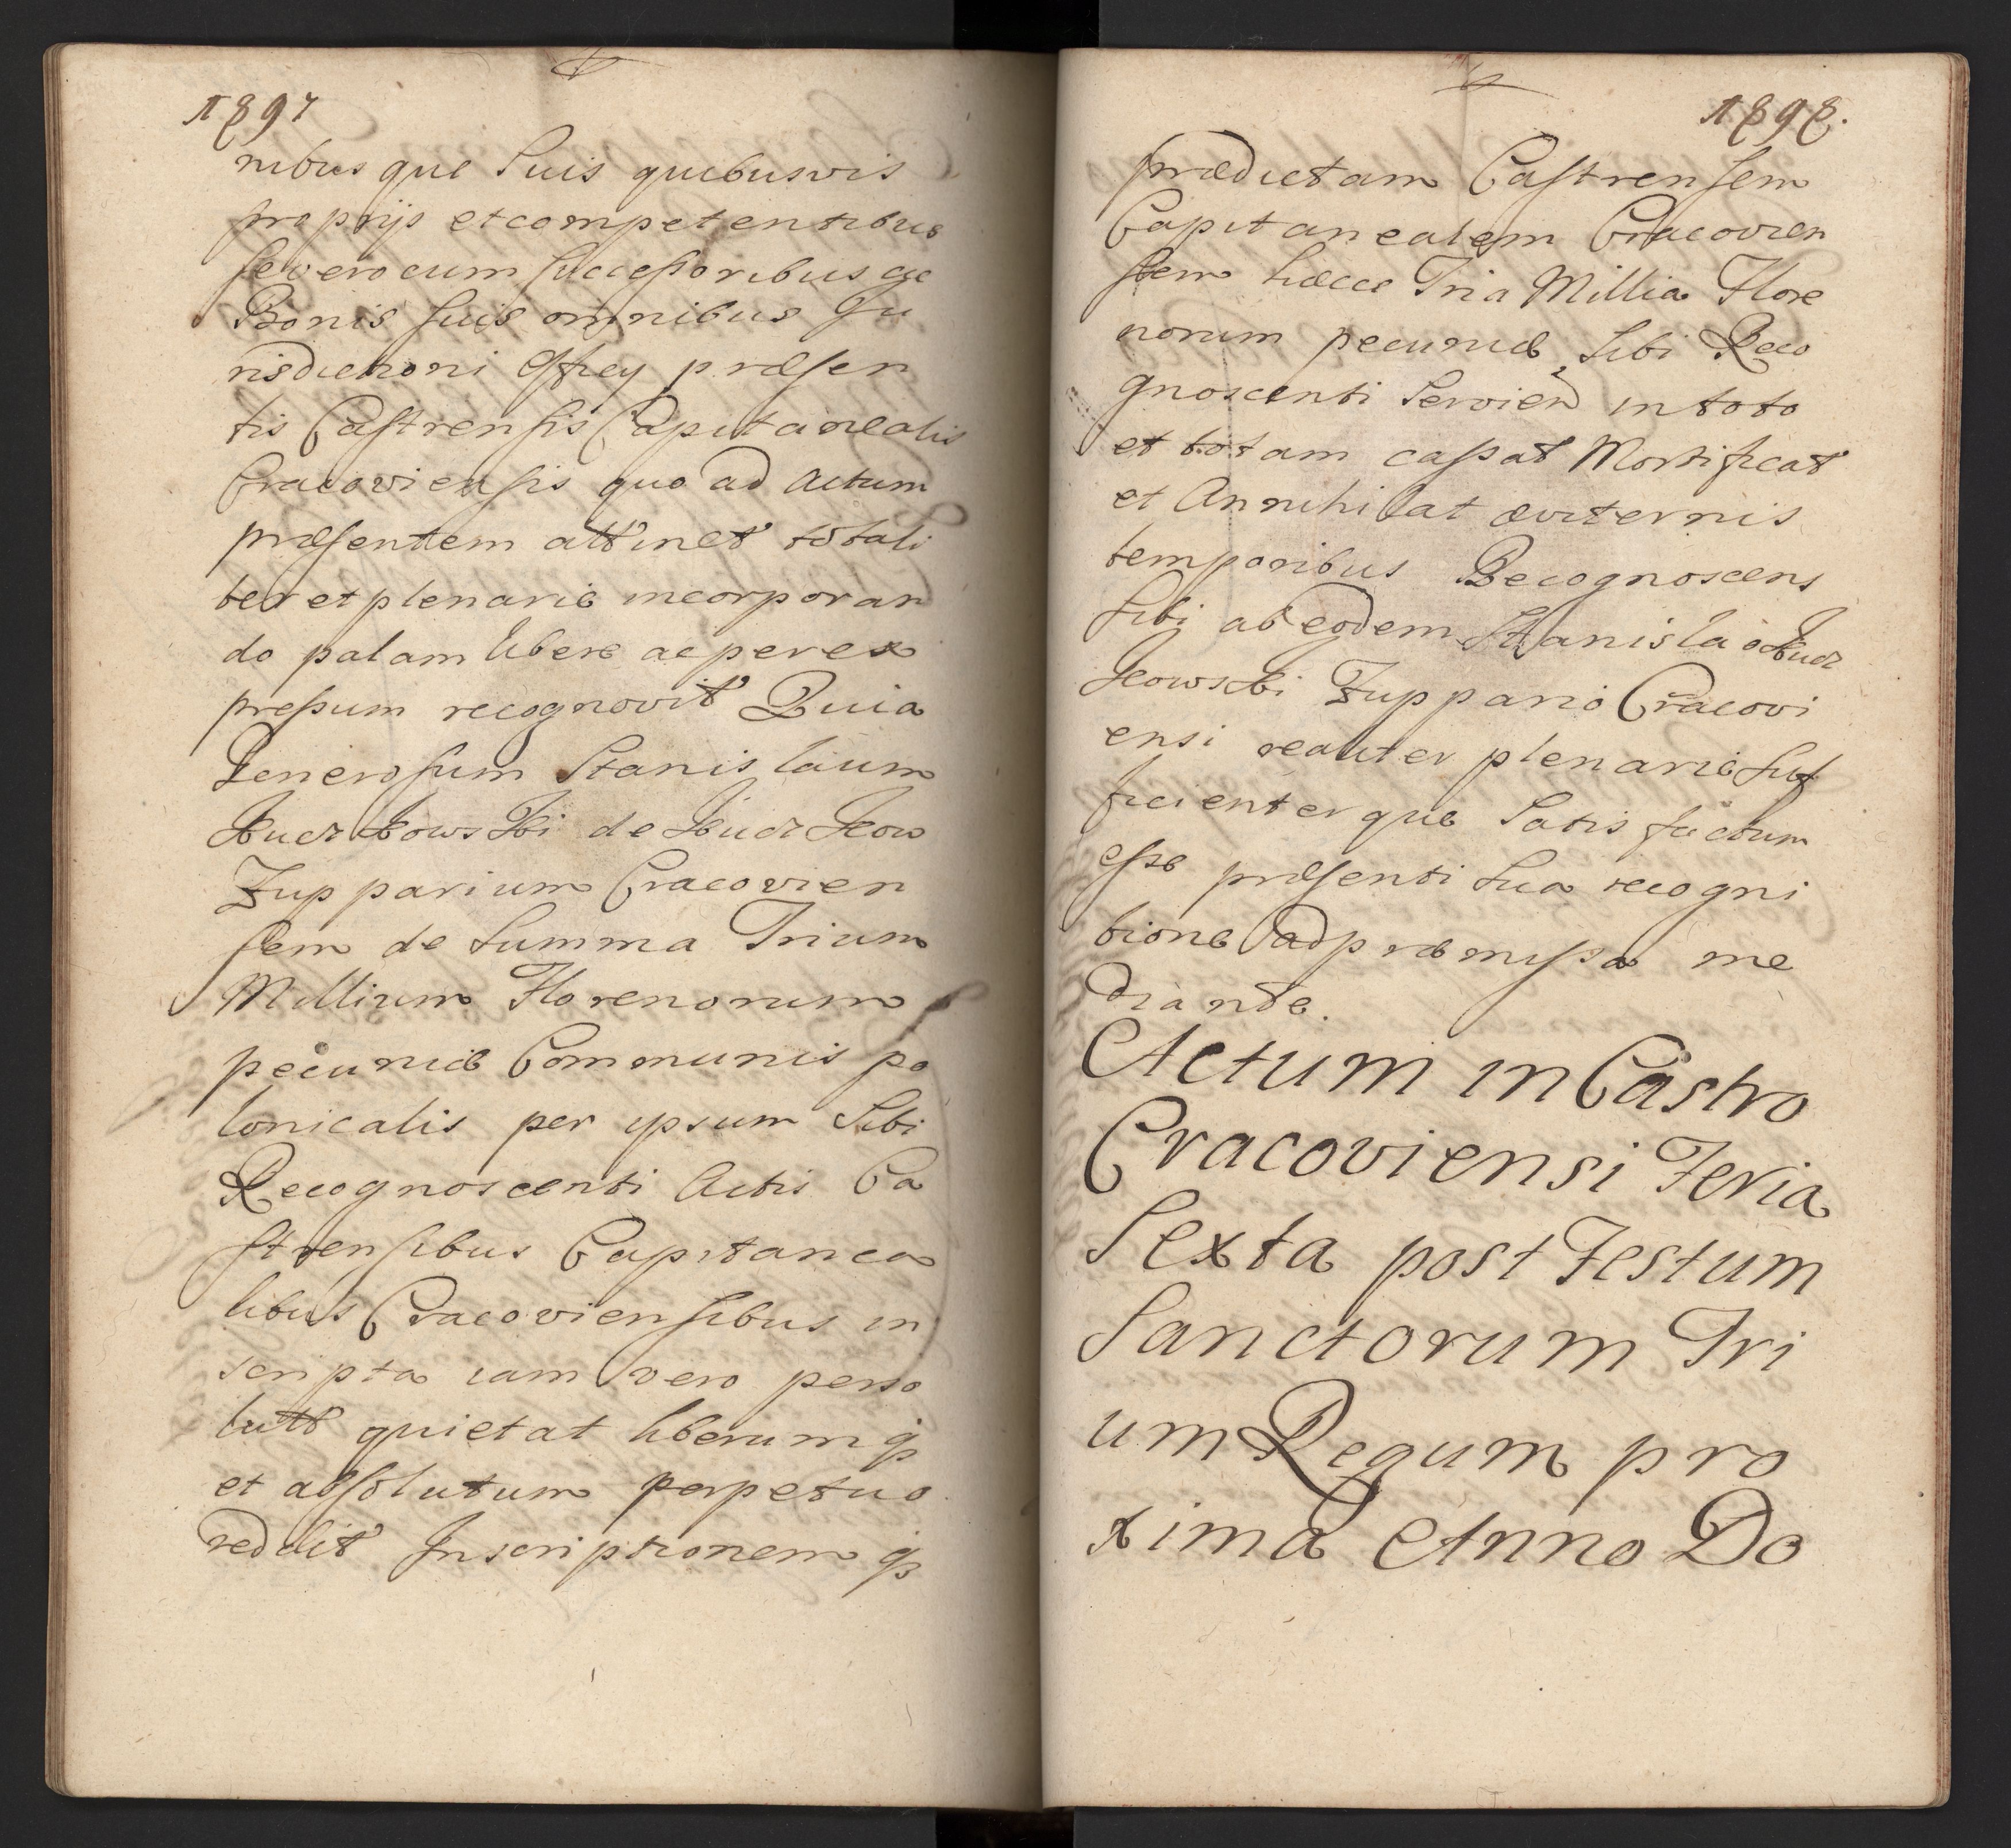 1897
nibusque Suis quibusvis
proprijs et competentibus
se vero cum successoribus ac
Bonis suis omnibus Ju
risdictioni Offcy præsen
tis Castrensis Capitanealis
Cracoviensis quo ad Actum
præsentem attinet totali
ter et plenarie incorporan
do palam libere ac per ex
pressum recognovit Quia
Generosum Stanislaum
Kuczkowski de Kuczkow
Zupparium Cracovien
sem de Summa Trium
Millium Florenorum
pecuniæ Communis po
lonicalis per ipsum Sibi
Recognoscenti Actis Ca
strensibus Capitanea
libus Craoviensibus in
scripta iam vero perso
luta quietat liberumq3
et absolutum perpetuo
reddit Inscriptionemq3
1898.
prædictam Castrensem
Capitanealem Cracovien
sem hæcce Tria Millia Flore
norum pecuniæ Sibi Reco
gnoscenti Servien in toto
et totam cassat Mortificat
et Annihilat æviternis
temporibus Recognoscens
Sibi ab eodem Stanislao Kucz
kowski Zuppario Cracovi
ensi realiter plenarie suf
ficienterque Satisfactum
esse præsenti Sua recogni
tione ad præmissa me
diante.
Actum in Castro
Cracoviensi Feria
Sexta post Festum
Sanctorum Tri
um Regum pro
xima Anno Do